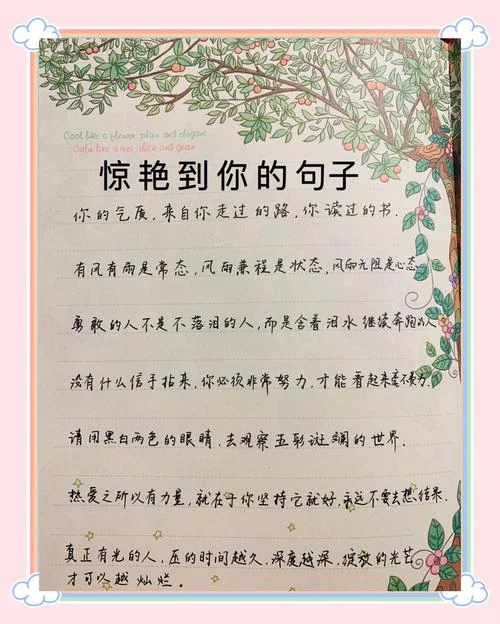 Cool like a flower, plain and elegant
Calm like a tree, thick and green
惊艳到你的句子
你的气质,来自你走过的路,你读过的书.
有风有雨是常态,风雨兼程是状态,风雨无阻是心态
勇敢的人不是不落泪的人,而是含着泪水继续奔跑的人
没有什么信手拈来,你必须非常努力,才能看起来毫不费力.
请用黑白两色的眼睛,去观察五彩斑斓的世界.
热爱之所以有力量,就在于你坚持它就好,永远不要去想结果.
真正有光的人,压的时间越久,深度越深,绽放的光芒
才可以越灿烂。